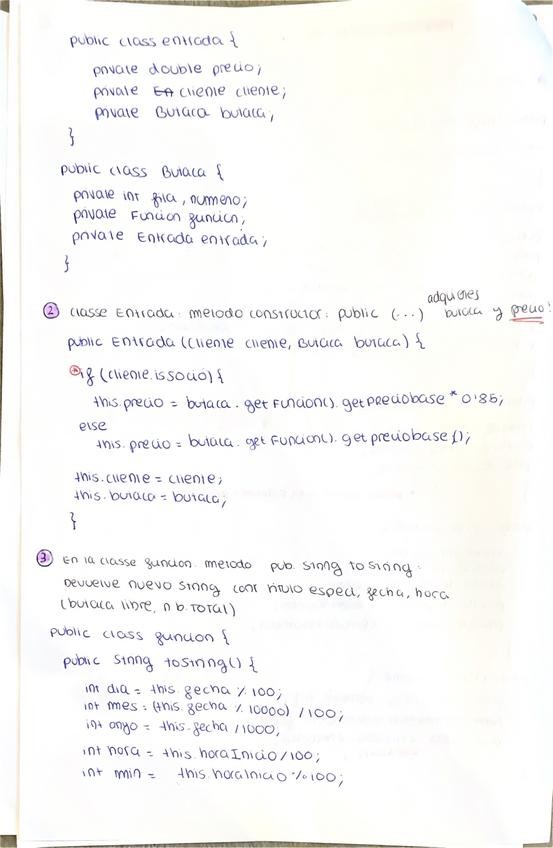 public class entrada {
private double precio;
private En cliente cliente;
private Butaca butaca;
}
public class Butaca {
private int fila, numero;
private Funcion funcion;
private Entrada entrada;
}
② classe Entrada. metodo constructor: public (...) adquieres butaca y precio!
public Entrada (Cliente cliente, Butaca butaca) {
if (cliente.isSocio) {
this.precio = butaca.getFuncion().getPreciobase * 0'85;
else
this.precio = butaca.getFuncion().getpreciobase();
this.cliente = cliente;
this.butaca = butaca;
}
③ En la classe funcion. metodo pub. String to string.
Devuelve nuevo string cont titulo especi, fecha, hora
(butaca libre, n b. TOTAL)
public class funcion {
public string toString() {
int dia = this.fecha % 100;
int mes = (this.fecha % 10000) / 100;
int anyo = this.fecha / 1000,
int hora = this.horaInicio / 100;
int min = this.horaInicio % 100;